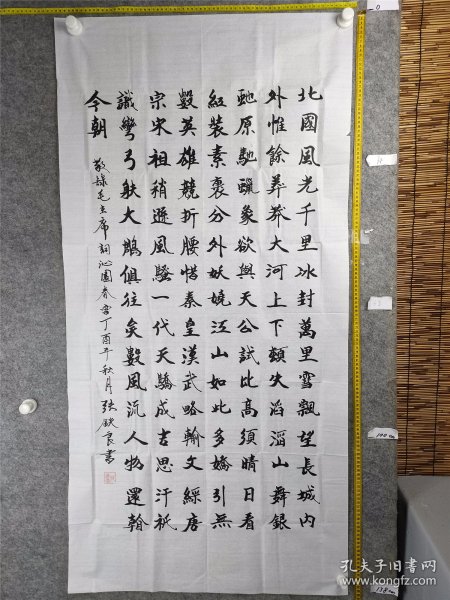 北國風光千里冰封萬里雪飄望長城內
外惟餘莽莽大河上下頓失滔滔山舞銀
虵原馳蠟象欲與天公試比高須晴日看
紅裝素裹分外妖嬈江山如此多嬌引無
數英雄競折腰惜秦皇漢武略輸文綵唐
宗宋祖稍遜風騷一代天驕成吉思汗祇
識彎弓躲大鵰俱往矣數風流人物還
今朝
敬錄毛主席詞沁園春雪丁酉年秋月張良書
孔夫子旧书网
www.kongfz.com